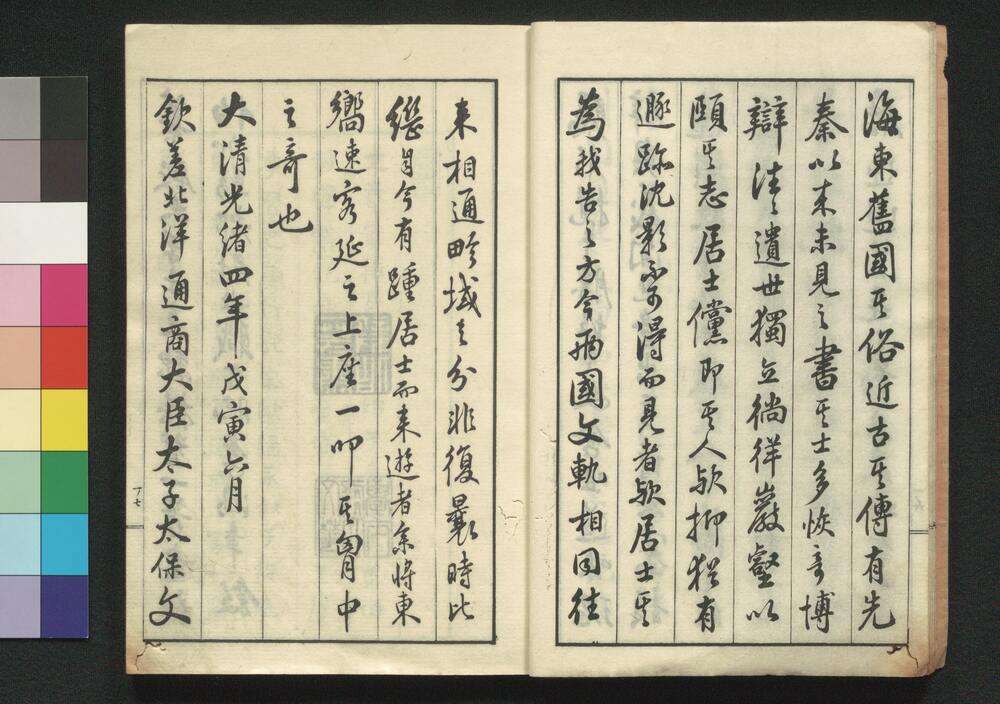 海東舊國其俗近古其傳有先
秦以来未見之書其士多恢奇博
辯往々遺世獨立徜徉巖壑以
頤其志居士儻即其人歟抑猶有
遯跡沈影不可得而見者歟居士其
為我告之方今兩國文軌相同往
来相通畛域之分非復曩時比
繼自今有踵居士而来遊者余將東
嚮速客延之上座一叩其胷中
之奇也
大清光緒四年戊寅六月
欽差北洋通商大臣太子太保文
十七